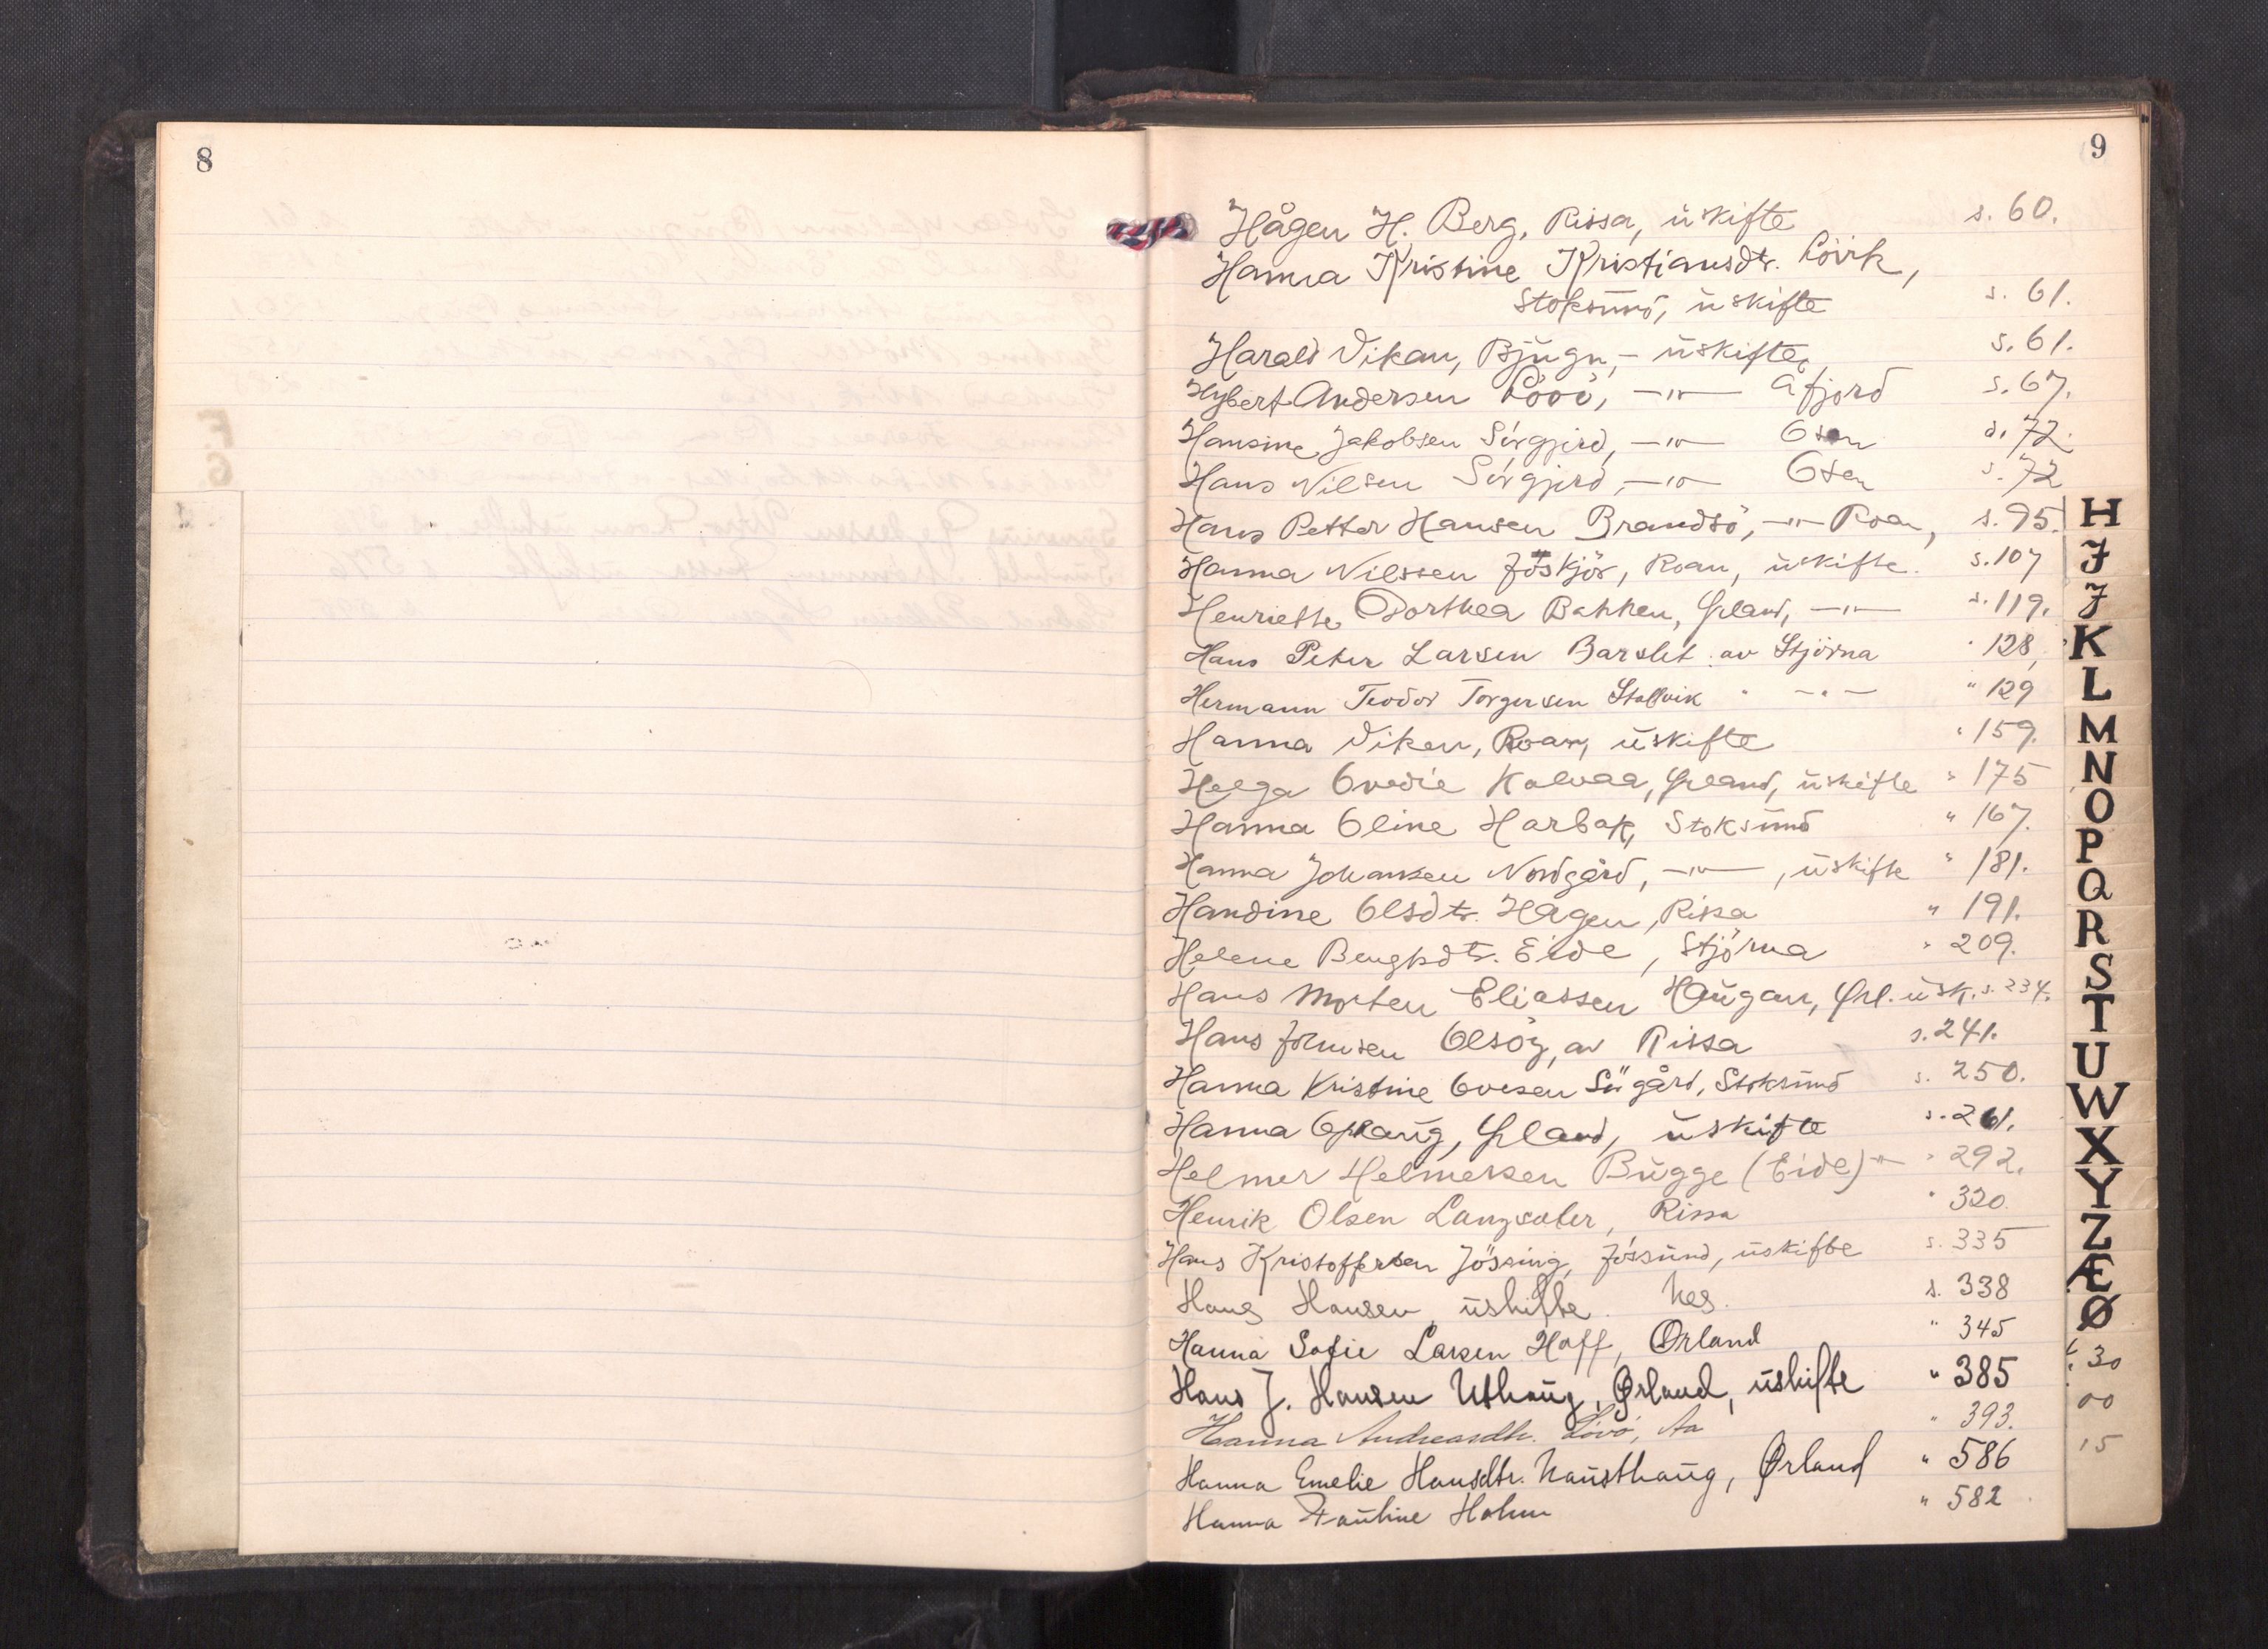 8
9
Hågen H. Berg, Rissa, uskifte s. 60.
Hanna Kristine Kristiansdtr. Lövik,
Stoksund, uskifte s. 61.
Harald Vikan, Bjugn, - uskifte, s. 61.
Hybert Andersen Lövö, -"- Åfjord s. 67.
Hansine Jakobsen Sörgjerd, -"- Osen s. 72.
Hans Nilsen Sörgjerd, -"- Osen s. 72
Hans Petter Hansen Brandsö, -"- Roan, s. 95.
Hanna Nilssen Föskjör, Roan, uskifte. s. 107
Henriette Dorthea Bakken, Ørland, -"- s. 119.
Hans Peter Larsen Barslet av Stjörna " 128,
Hermann Teodor Torgersen Stallvik " -"- " 129
Hanna Viken, Roan, uskifte " 159.
Helga Ovedie Kalvaa, Ørland, uskifte " 175
Hanna Oline Harbak, Stoksund " 167.
Hanna Johansen Nordgård, -"-, uskifte " 181.
Handine Olsdtr. Hagen, Rissa " 191.
Helene Bengtsdtr. Eide, Stjörna " 209.
Hans Morten Eliassen Haugan, Ørl. usk. s. 234.
Hans Johnsen Olsöy, av Rissa s. 241.
Hanna Kristine Ovesen Sörgård, Stoksund s. 250.
Hanna Ophaug, Ørland, uskifte s. 261.
Helmer Helmersen Bugge (Eide) -"- " 292.
Henrik Olsen Langsæter, Rissa " 320.
Hans Kristoffersen Jössing, Jössund, uskifte s. 335
Hans Hansen, uskifte. Nes. s. 338
Hanna Sofie Larsen Hoff, Ørland " 345
Hans J. Hansen Uthaug, Ørland, uskifte " 385
Hanna Andreasdtr. Lövö, Aa " 393.
Hanna Emelie Hansdtr. Nausthaug, Ørland " 586
Hanna Pauline Holm " 582
H
I
J
K
L
M
N
O
P
Q
R
S
T
U
W
X
Y
Z
Æ
Ø
30
00
15